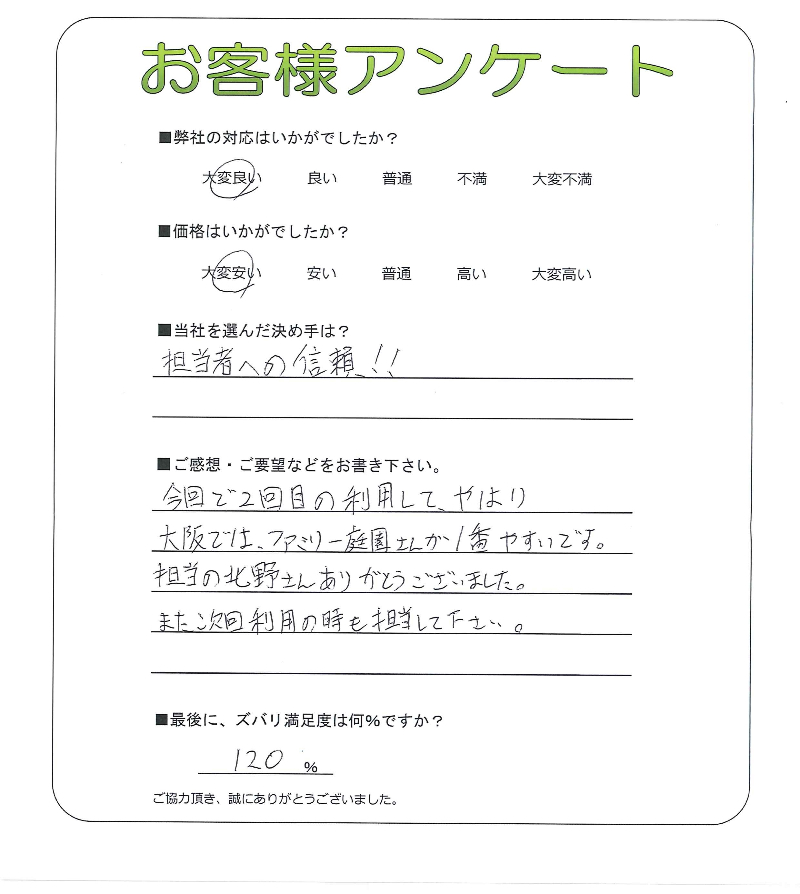 お客様アンケート
■弊社の対応はいかがでしたか？
大変良い 良い 普通 不満 大変不満
■価格はいかがでしたか？
大変安い 安い 普通 高い 大変高い
■当社を選んだ決め手は？
担当者への信頼!!
■ご感想・ご要望などをお書き下さい。
今回で2回目の利用して、やはり
大阪では、ファミリー庭園さんが1番やすいです。
担当の北野さんありがとうございました。
また次回利用の時も担当して下さい。
■最後に、ズバリ満足度は何%ですか？
120 %
ご協力頂き、誠にありがとうございました。